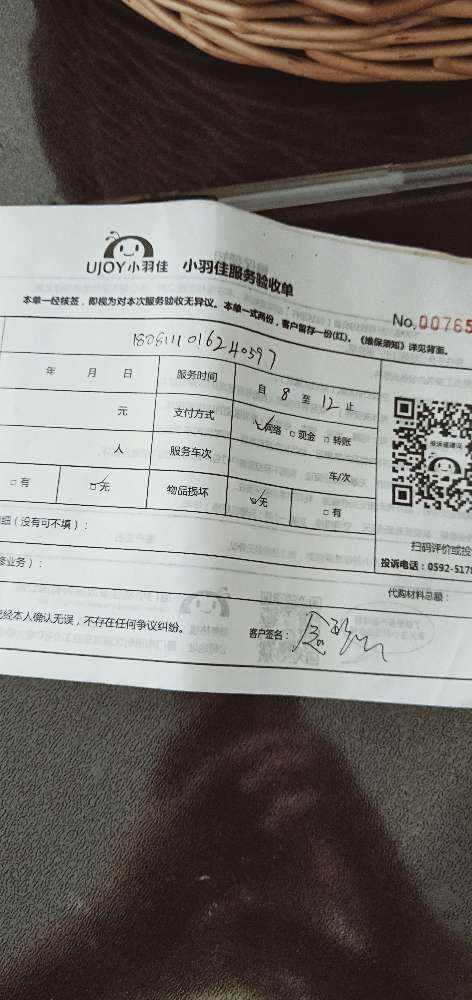 UJOY小羽佳 小羽佳服务验收单
本单一经核签，即视为对本次服务验收无异议。本单一式两份，客户留存一份(红)。《维保须知》详见背面。
No.00765
年 月 日 服务时间 自 8 至 12 止
元 支付方式 ☑网络 □现金 □转账
人 服务车次 车/次
□有 ☑无 物品损坏 ☑无 □有
投诉或建议
细（没有可不填）：
扫码评价或投
投诉电话：0592-5178
修业务）：
代购材料总额：
已经本人确认无误，不存在任何争议纠纷。 客户签名：